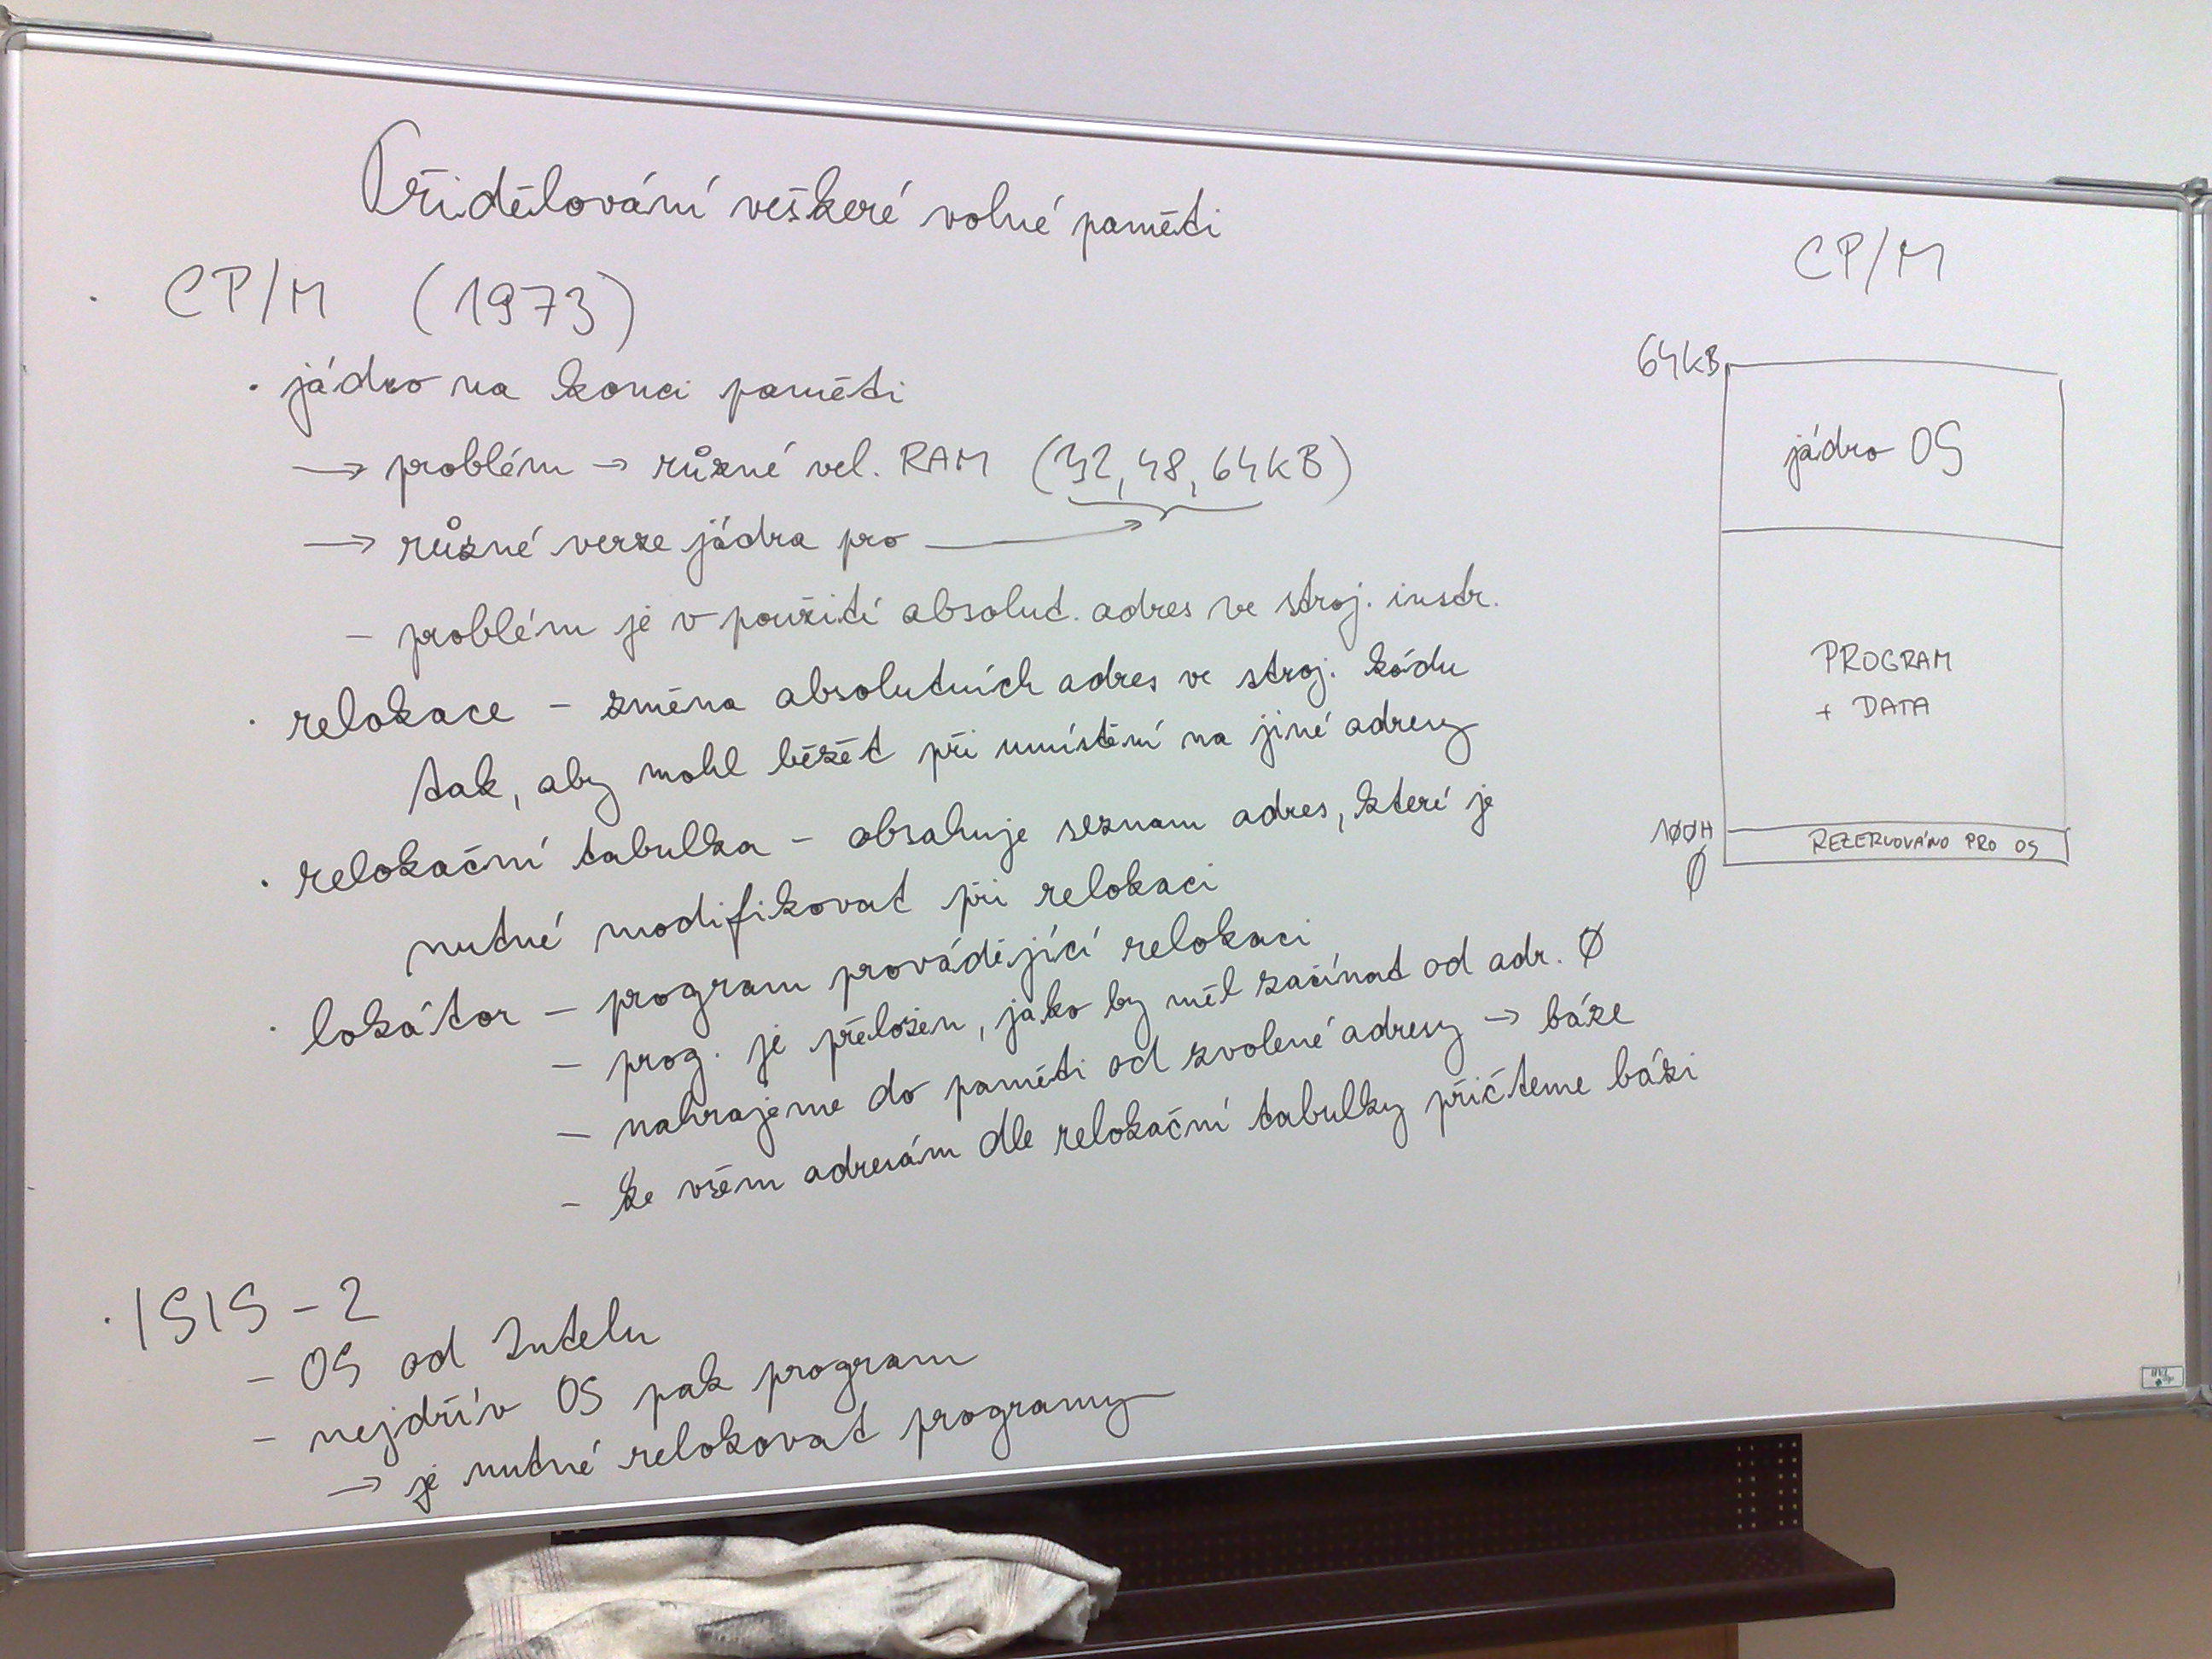 Přidělování veškeré volné paměti
· CP/M (1973)
· jádro na konci paměti
→ problém → různé vel. RAM (32, 48, 64kB)
→ různé verze jádra pro
- problém je v použití absolut. adres ve stroj. instr.
· relokace - změna absolutních adres ve stroj. kódu
tak, aby mohl běžět při umístění na jiné adresy
· relokační tabulka - obsahuje seznam adres, které je
nutné modifikovat při relokaci
· lokátor - program provádějící relokaci
- prog. je přeložen, jako by měl začínat od adr. Ø
- nahrajeme do paměti od zvolené adresy → báze
- ke všem adresám dle relokační tabulky přičteme bázi
· ISIS-2
- OS od Intelu
- nejdřív OS pak program
→ je nutné relokovat programy
CP/M
64kB
jádro OS
PROGRAM
+ DATA
1ØØH
REZERVOVÁNO PRO OS
Ø